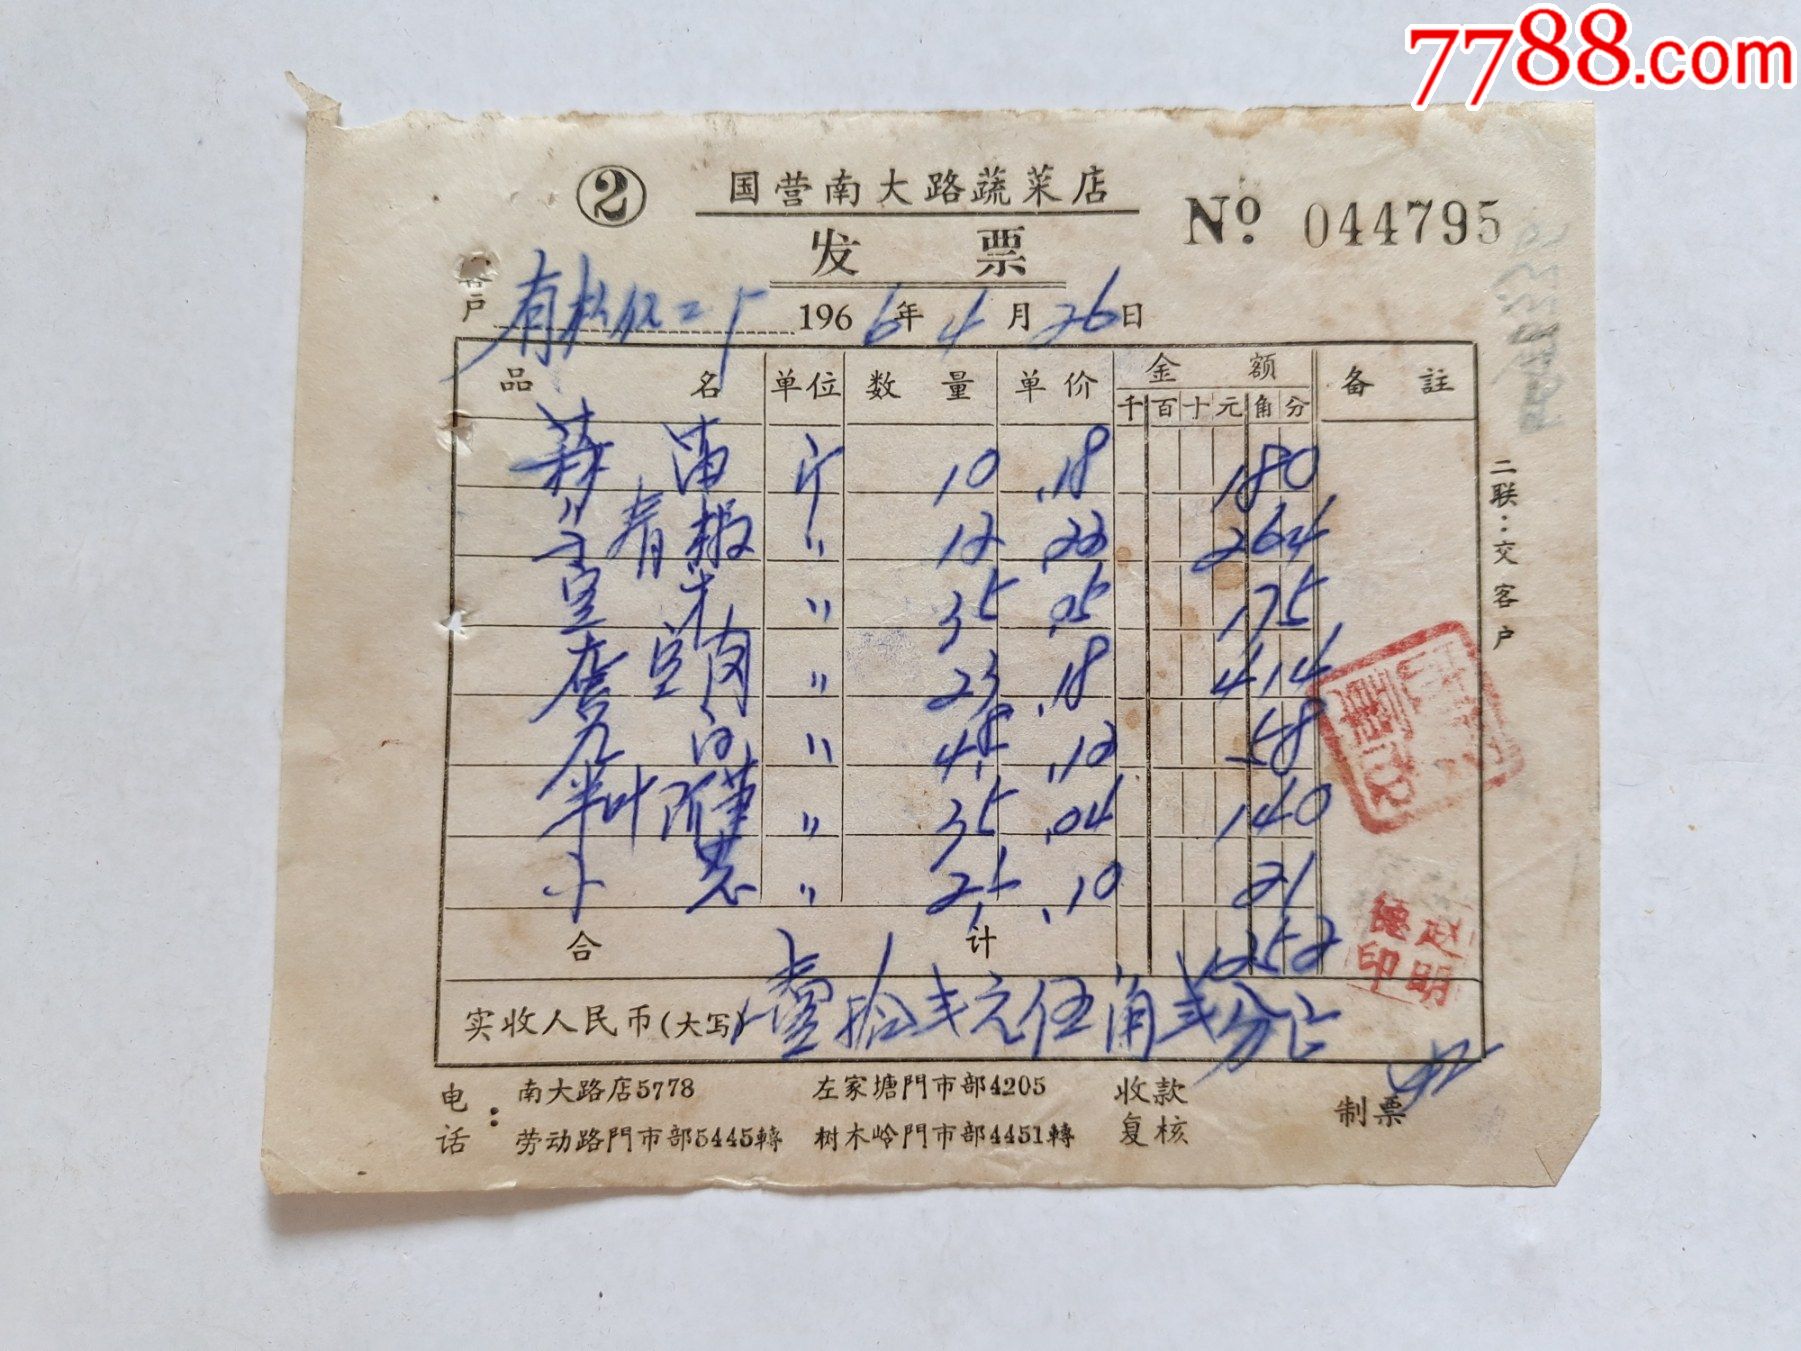 7788.com
② 国营南大路蔬菜店
发 票
№ 044795
客户 1966年4月26日
品 名 单位 数 量 单 价 金 额 备 註
千 百 十 元 角 分
蒜 苗 斤 10 .18 180
青椒 〃 12 .22 264
豆 芽 〃 35 .05 175
豆 〃 23 .18 414
〃 48 .12 58
〃 35 .04 140
小 葱 〃 21 .10 21
合 计 1252
实收人民币(大写) 壹拾弍元伍角弍分正
二联:交客户
赵明德印
电话: 南大路店5778 左家塘門市部4205 收款
劳动路門市部5445轉 树木岭門市部4451轉 复核
制票